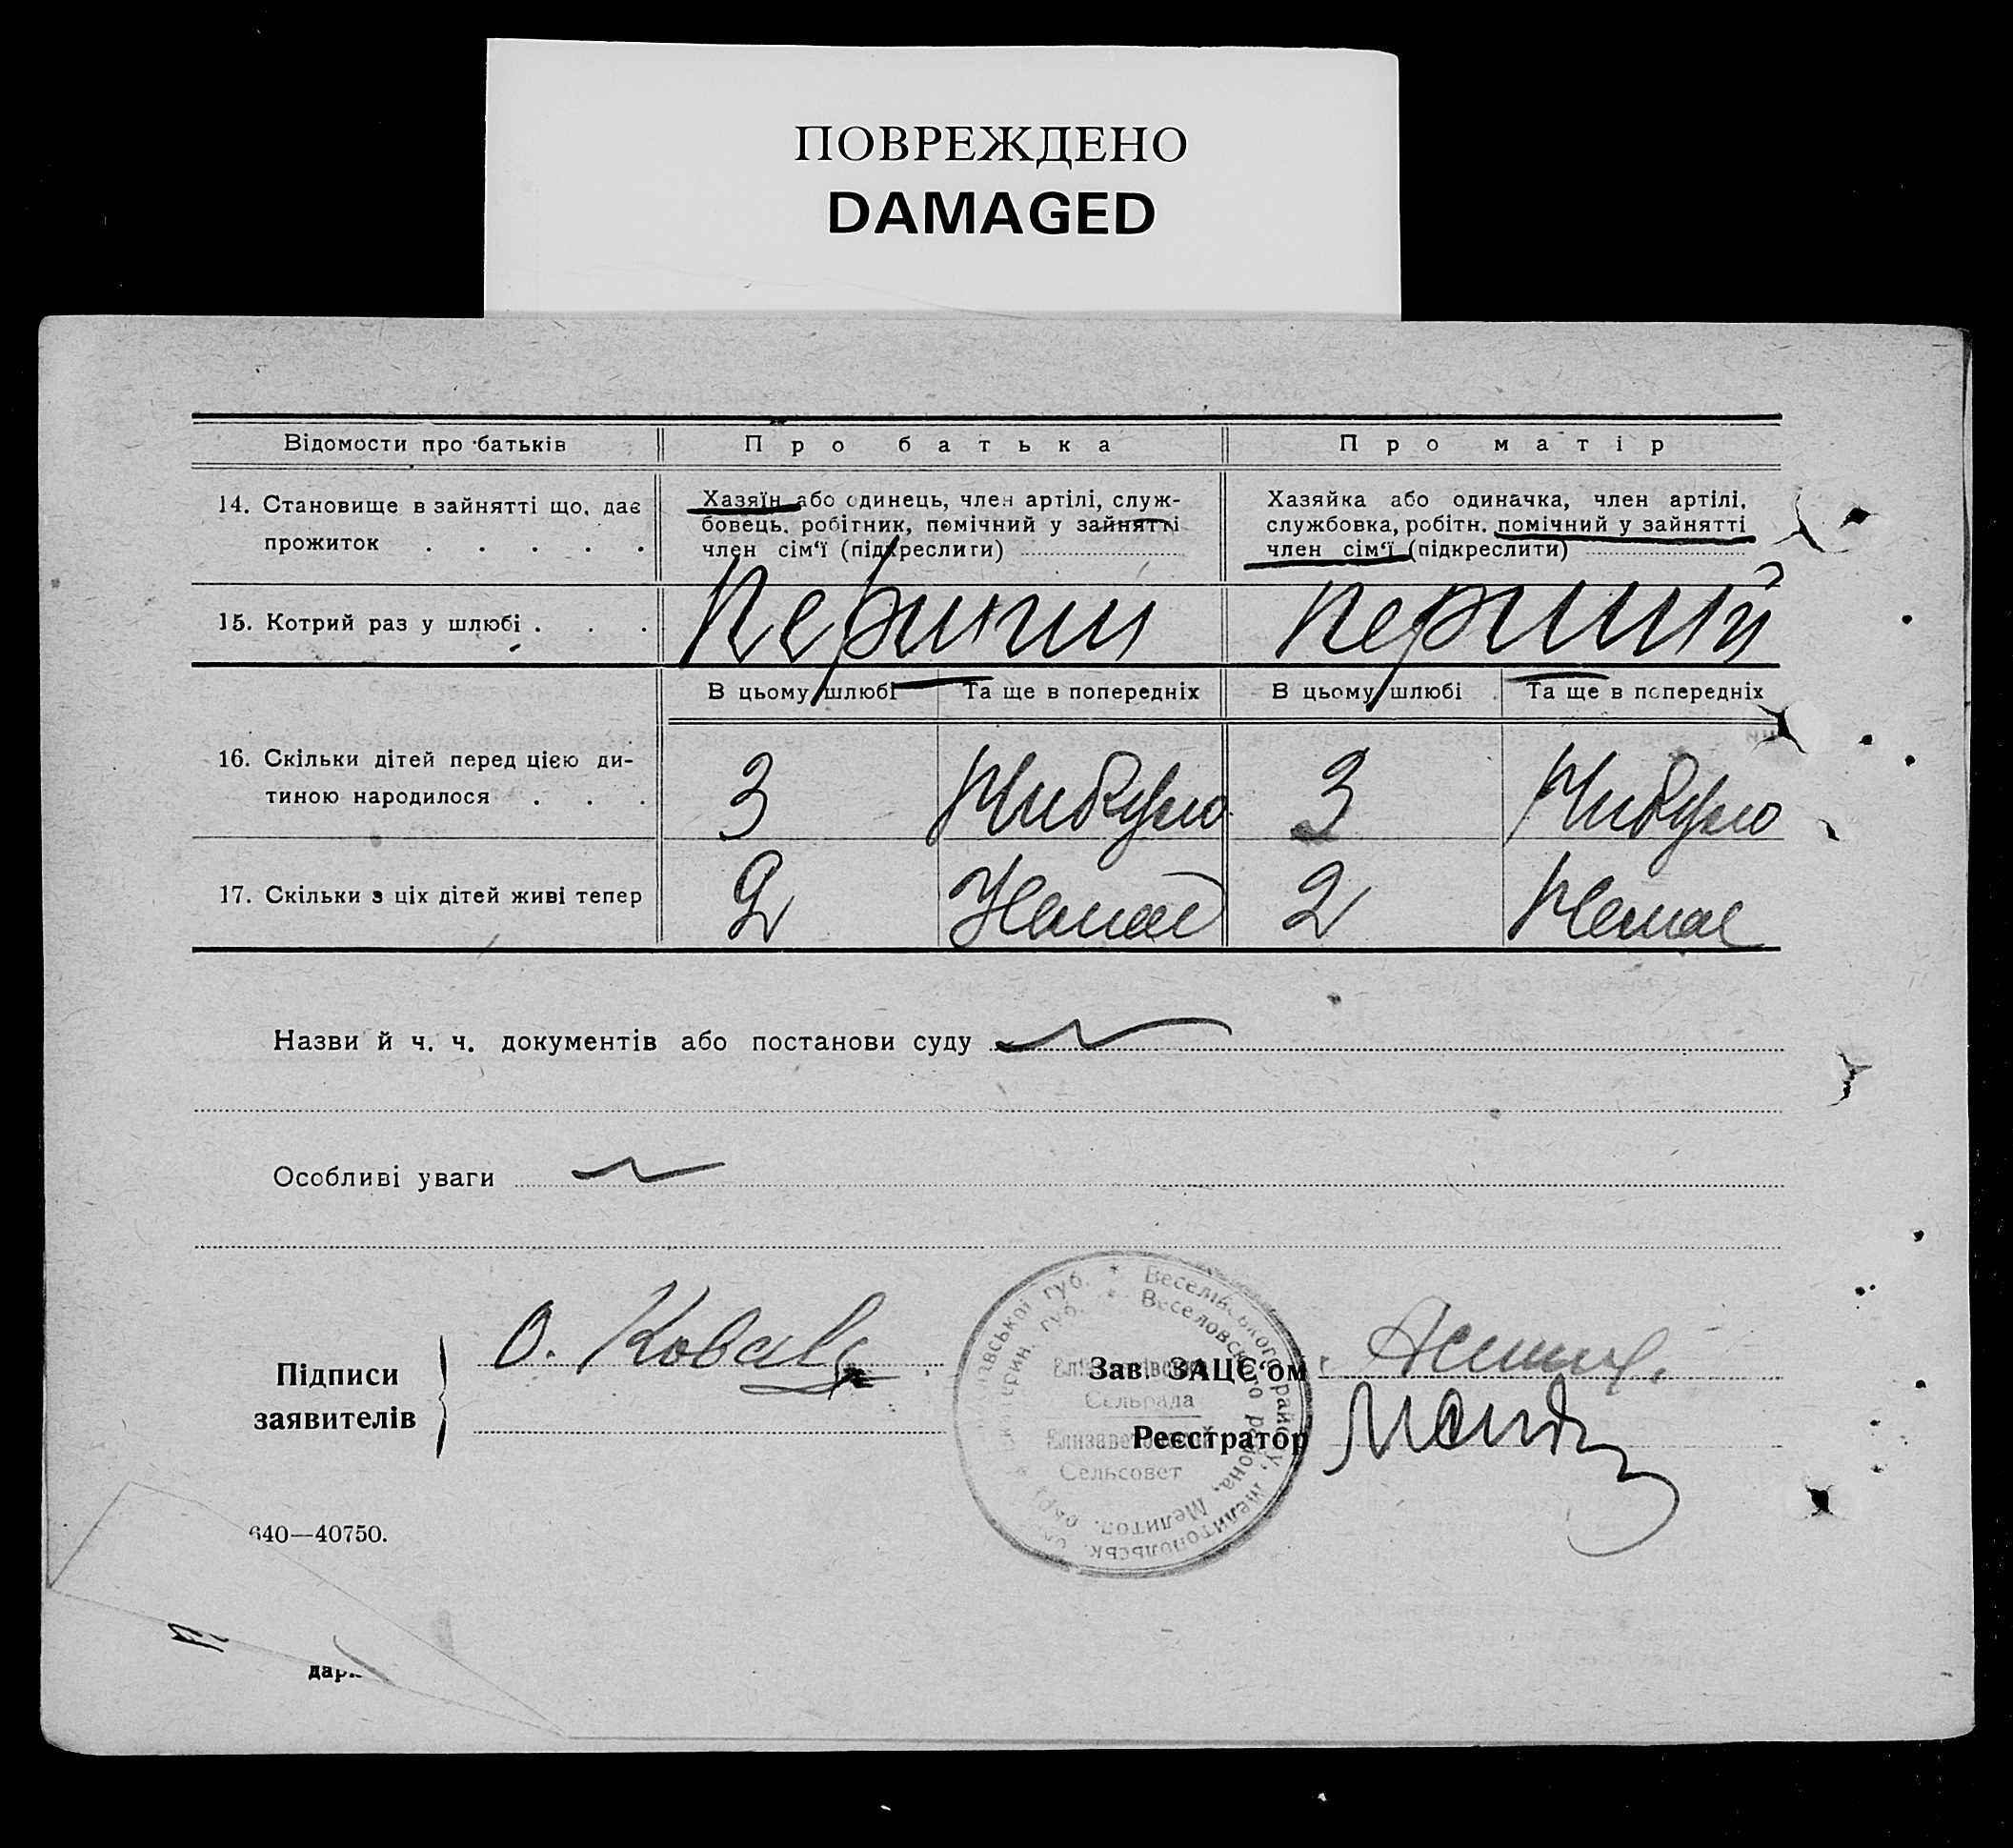 ПОВРЕЖДЕНО
DAMAGED
Відомости про батьків
Про батька
Про матір
14. Становище в зайнятті що, дає
прожиток . . . . .
Хазяїн або одинець, член артілі, служ-
бовець, робітник, помічний у зайнятті
член сім'ї (підкреслити)
Хазяйка або одиначка, член артілі,
службовка, робітн. помічний у зайнятті
член сім'ї (підкреслити)
15. Котрий раз у шлюбі . . .
Перший
Перший
В цьому шлюбі
Та ще в попередніх
В цьому шлюбі
Та ще в попередніх
16. Скільки дітей перед цією ди-
тиною народилося . . .
3
Нибуло
3
Нибуло
17. Скільки з ціх дітей живі тепер
2
Немає
2
Немає
Назви й ч. ч. документів або постанови суду
Особливі уваги
Підписи
заявителів
О. Коваль
Зав. ЗАЦС'ом
Реєстратор
Веселівського району, Мелитопольськ.
Веселовского района, Мелитоп.
Сельрада
Сельсовет
640—40750.